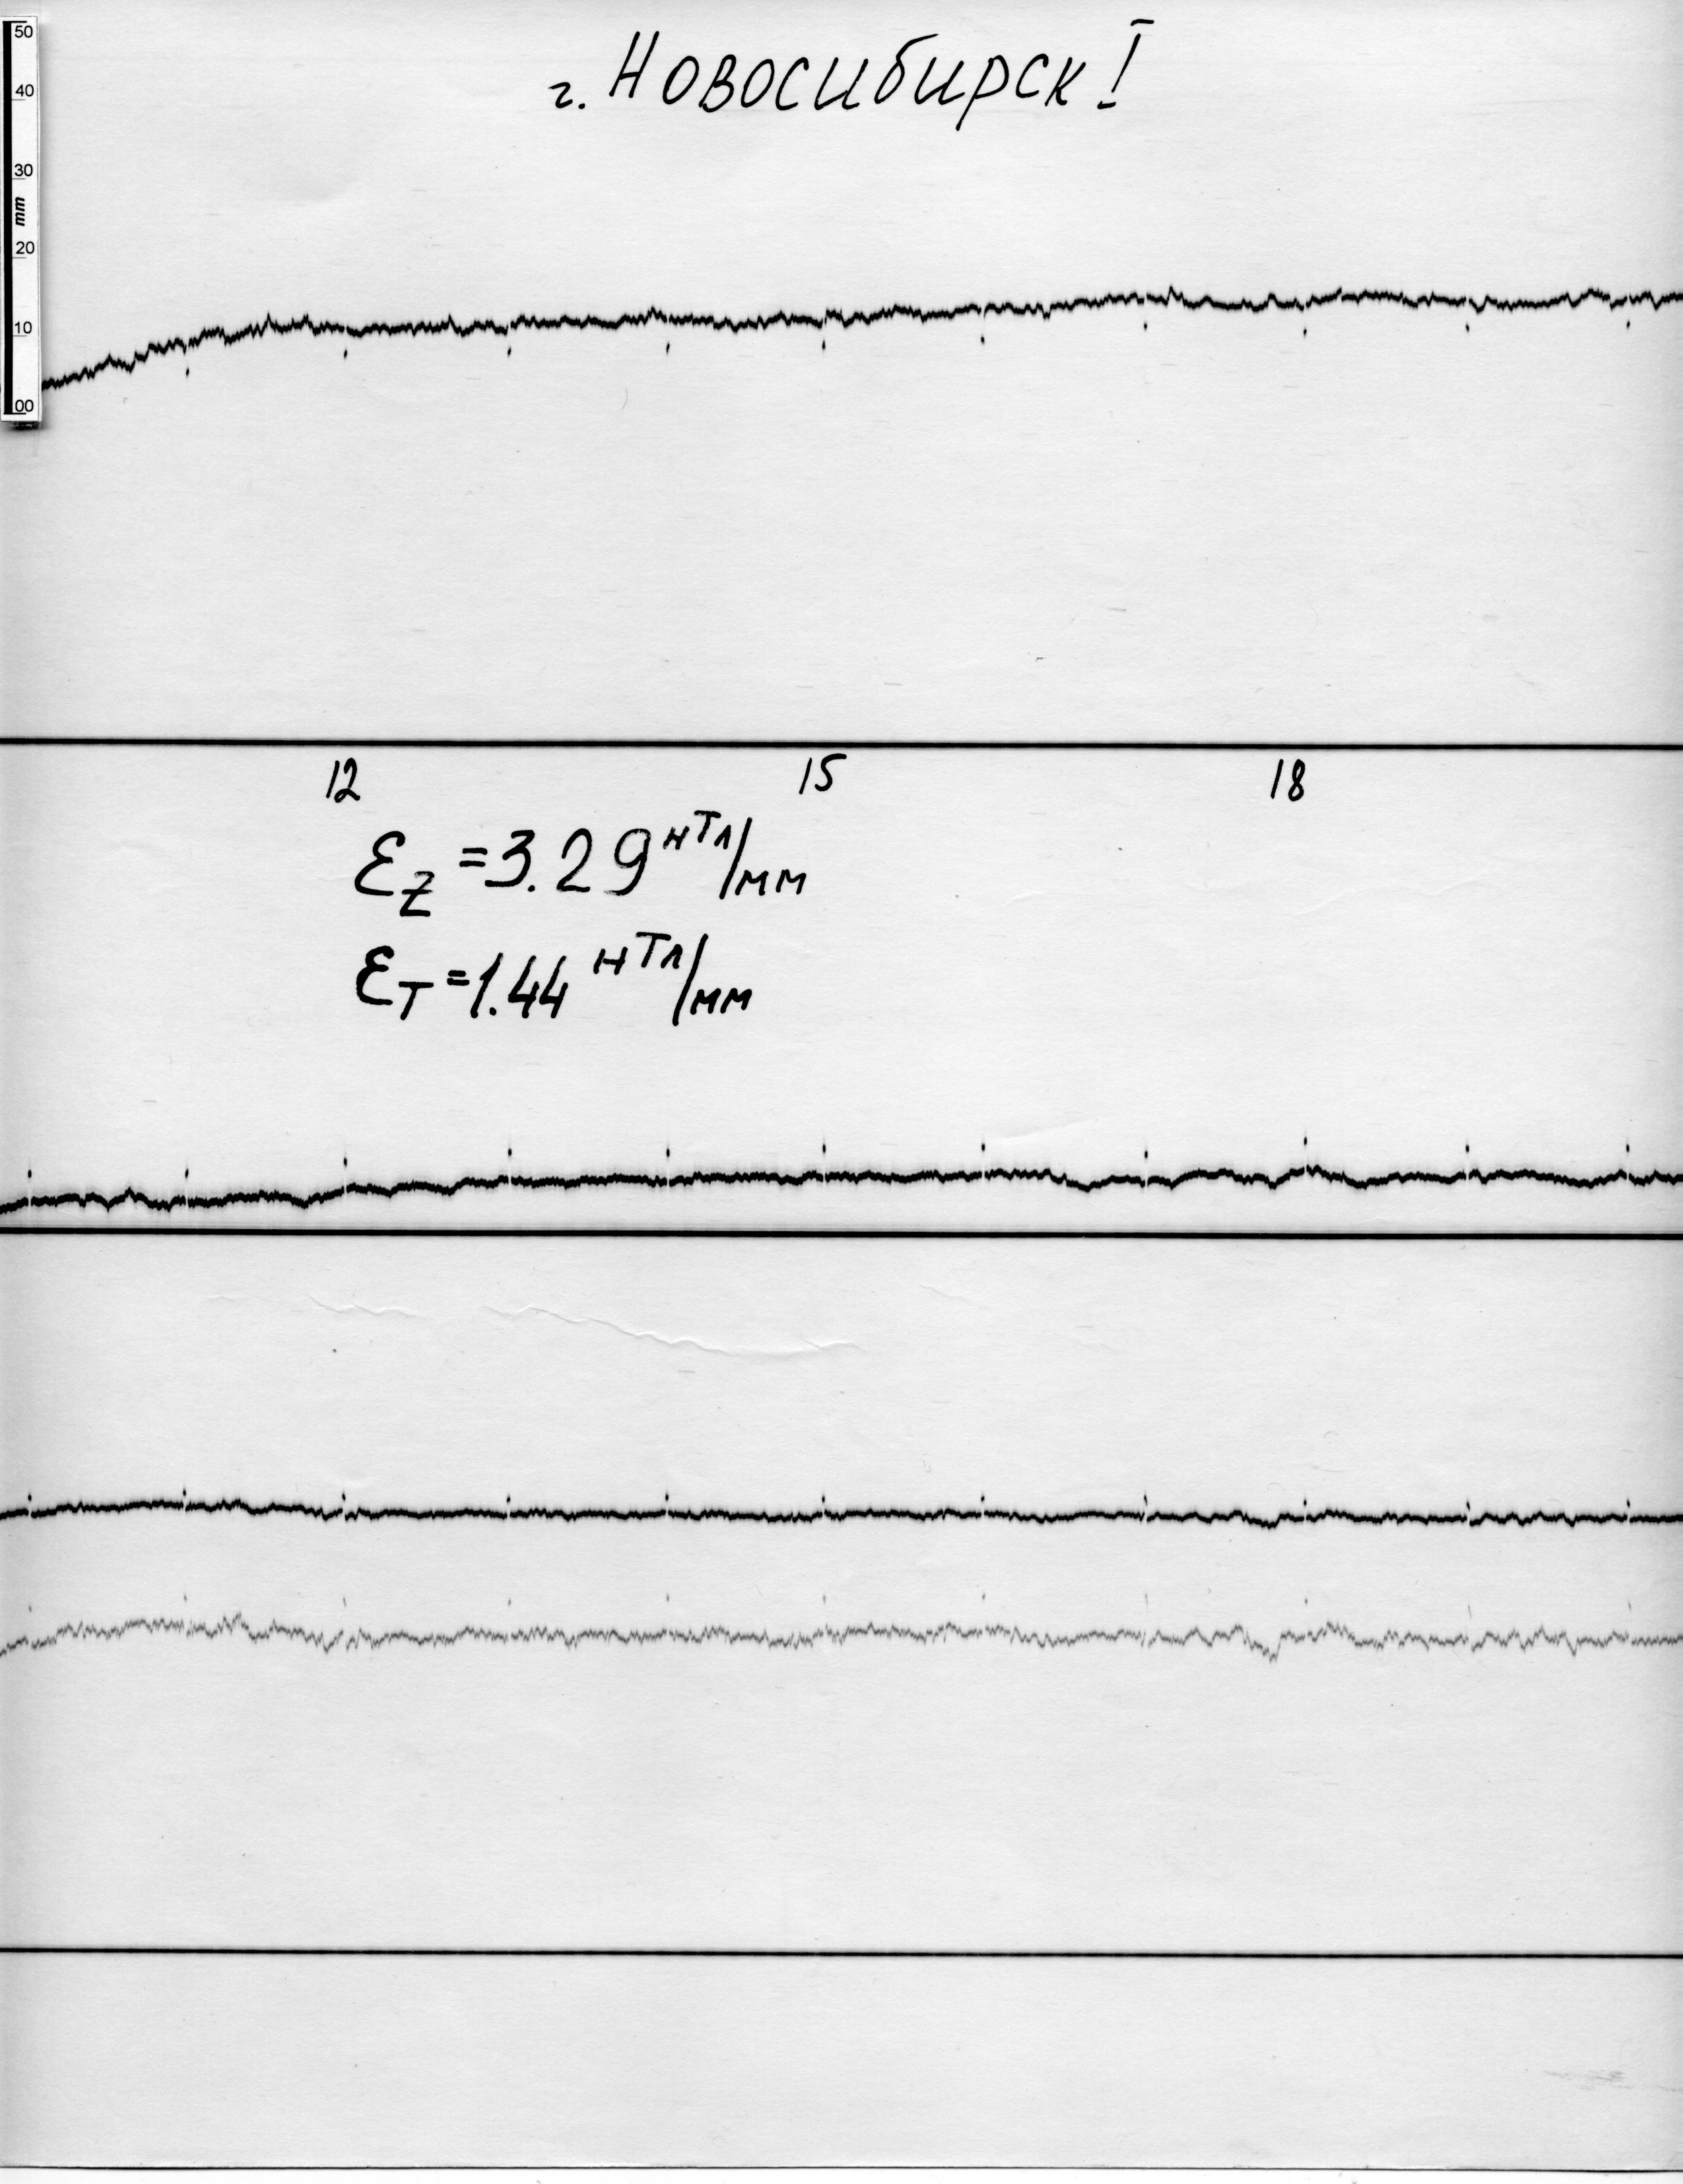 50
40
30
mm
20
10
00
г. Новосибирск I
12 15 18
Ɛz = 3.29 нТл/мм
Ɛт = 1.44 нТл/мм